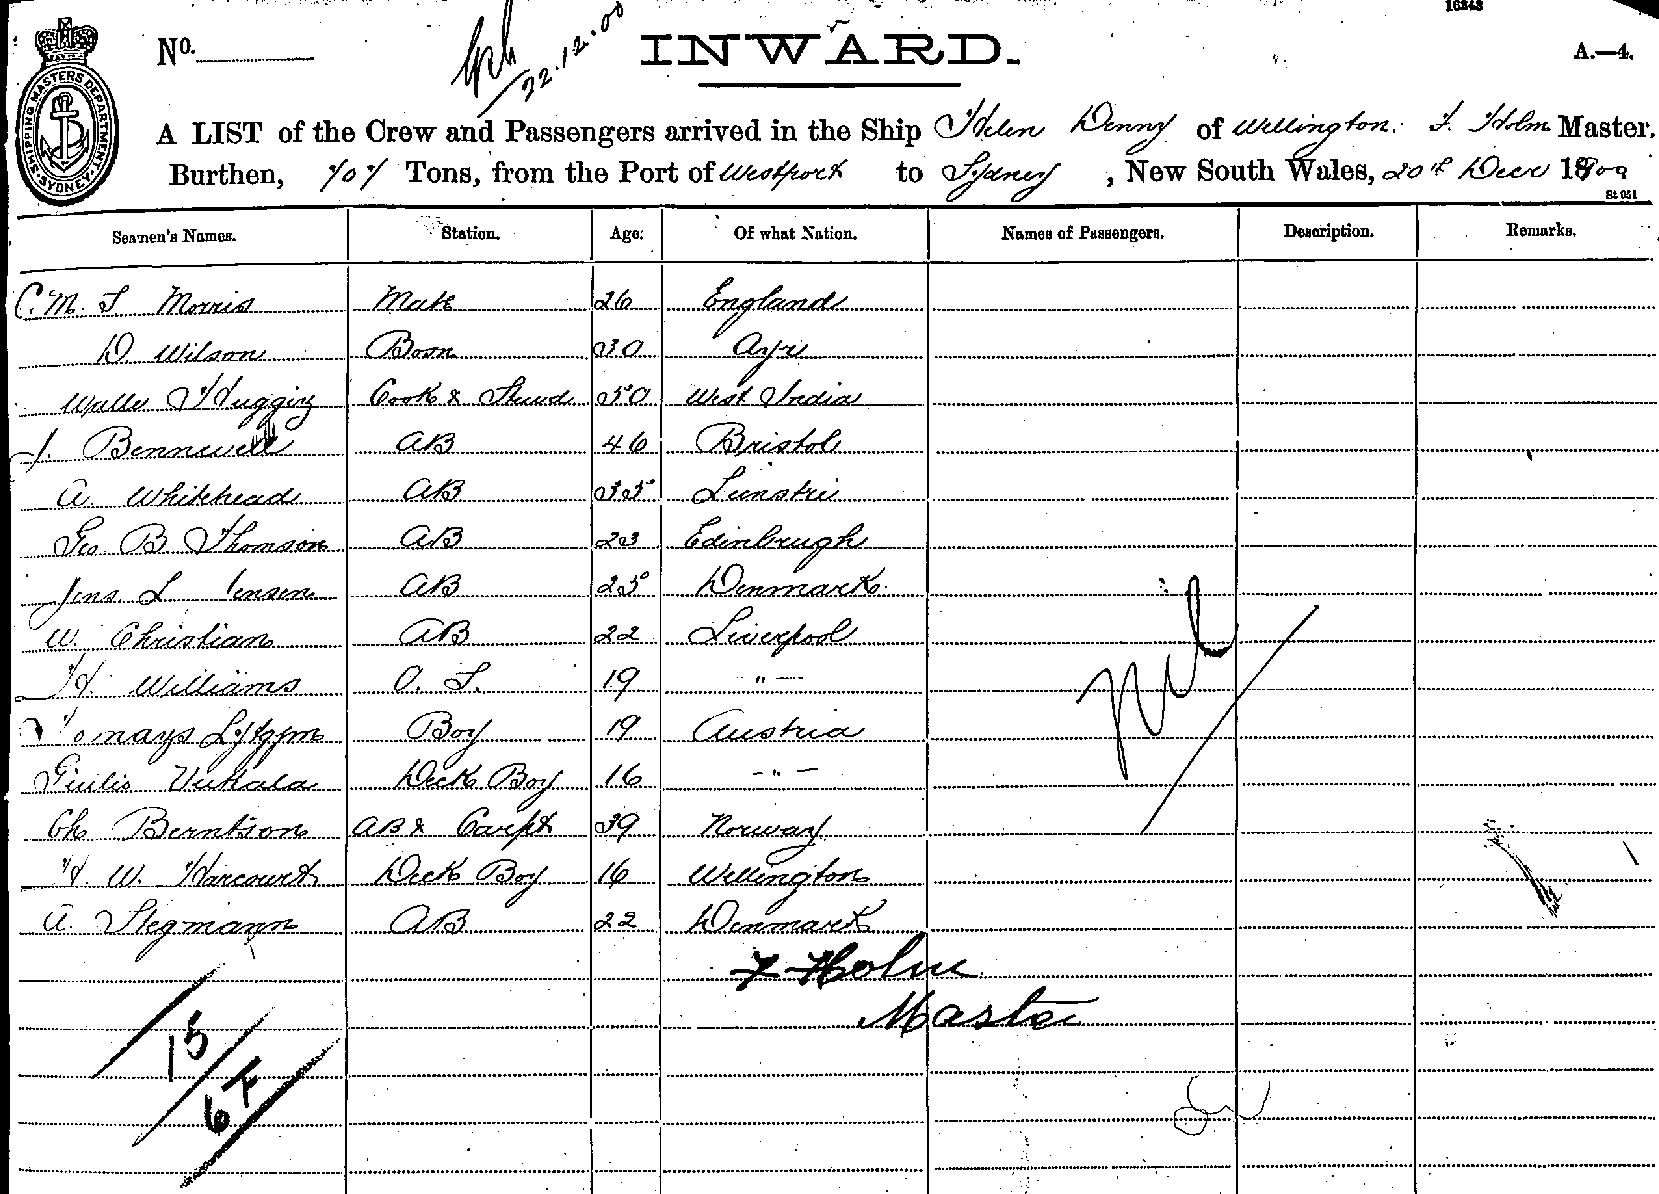 16248
No. 22.12.00 INWARD. A.—4.
SHIPPING MASTERS DEPARTMENT SYDNEY
A LIST of the Crew and Passengers arrived in the Ship Helen Denny of Wellington. F. Holm Master.
Burthen, 707 Tons, from the Port of Westport to Sydney, New South Wales, 20th Decr 1900
St 051
Seamen's Names. Station. Age. Of what Nation. Names of Passengers. Description. Remarks.
C. M. S Morris Mate 26 England
D. Wilson Bosn 30 Ayr
Huggins Cook & Stewd 50 West India
J. Bennewell AB 46 Bristol
A. Whitehead AB 35
Geo B Thomson AB 23 Edinbrugh
Jens L Jensen AB 25 Denmark
W. Christian AB 22 Liverpool
H. Williams O. S. 19 " —
Boy 19 Austria
Giulio Vukala Deck Boy 16 — " —
Ch Berntson AB & Carpt 39 Norway
H. W. Harcourt Deck Boy 16 Wellington
A. Stegmann AB 22 Denmark
nil
F Holm
Master
15
6 F